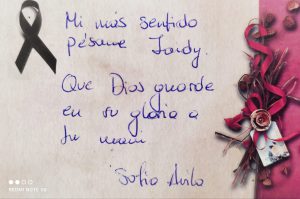 Mi más sentido
pésame Jordy.
Que Dios guarde
en su gloria a
tu mami
Sofia Avila
REDMI NOTE 10